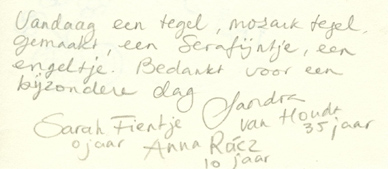 Vandaag een tegel, mozaik tegel,
gemaakt, een Serafijntje, een
engeltje. Bedankt voor een
bijzondere dag
Sandra
van Houdt
35 jaar
Sarah Fientje
0 jaar
Anna Rácz
10 jaar